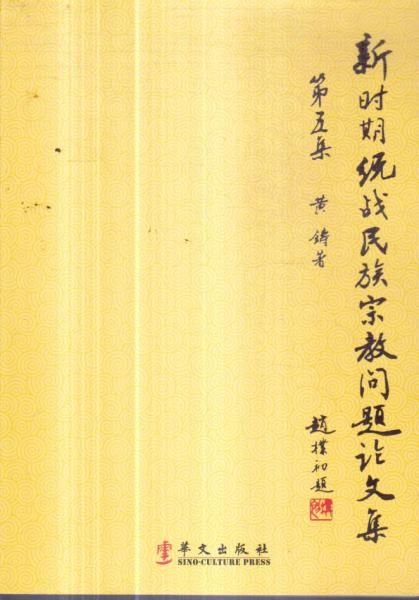 新时期统战民族宗教问题论文集
第五集
黄铸著
趙樸初題
華文出版社
SINO-CULTURE PRESS